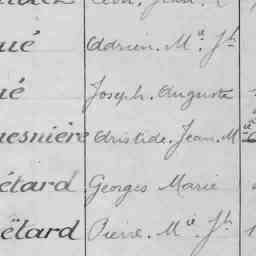 ué Adrien. Mie. Jh
ué Joseph. Auguste
esnière Aristide. Jean. M
étard Georges Marie
étard Pierre. Mie. Jh